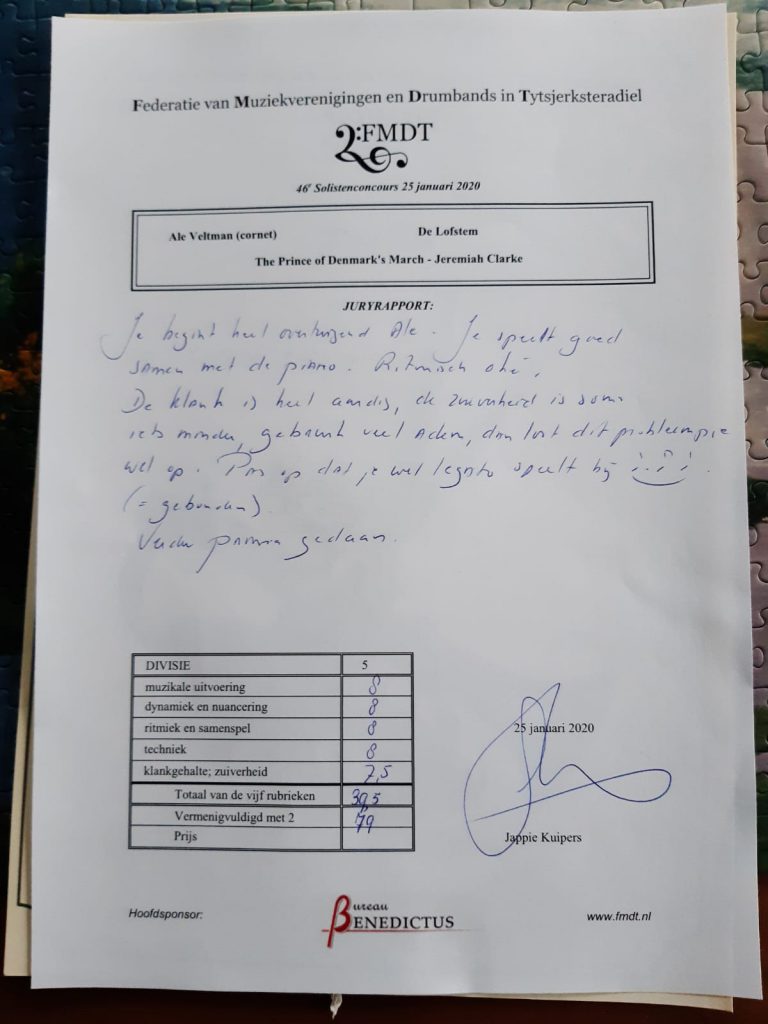 Federatie van Muziekverenigingen en Drumbands in Tytsjerksteradiel
FMDT
46e Solistenconcours 25 januari 2020
Ale Veltman (cornet) De Lofstem
The Prince of Denmark's March - Jeremiah Clarke
JURYRAPPORT:
Je begint heel overtuigend Ale. Je speelt goed
samen met de piano. Ritmisch oké.
De klank is heel aardig, de zuiverheid is soms
iets minder, gebruik veel Adem, dan lost dit probleempje
wel op. Pas op dat je wel legato speelt bij
(= gebonden).
Verder prima gedaan.
DIVISIE 5
muzikale uitvoering 8
dynamiek en nuancering 8
ritmiek en samenspel 8
techniek 8
klankgehalte; zuiverheid 7,5
Totaal van de vijf rubrieken 39,5
Vermenigvuldigd met 2 79
Prijs
25 januari 2020
Jappie Kuipers
Hoofdsponsor:
Bureau
BENEDICTUS
www.fmdt.nl